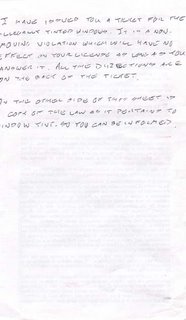 I HAVE ISSUED YOU A TICKET FOR THE
ILLEGALLY TINTED WINDOWS. IT IS A NON-
MOVING VIOLATION WHICH WILL HAVE NO
EFFECT ON YOUR LICENSE AS LONG AS YOU
ANSWER IT. ALL THE DIRECTIONS ARE
ON THE BACK OF THE TICKET.
ON THE OTHER SIDE OF THIS SHEET IS
COPY OF THE LAW AS IT PERTAINS TO
WINDOW TINT. SO YOU CAN BE INFORMED